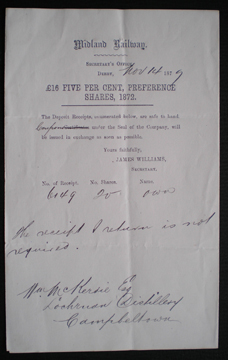 Midland Railway.
SECRETARY'S OFFICE,
DERBY, Nov 14 1879
£16 FIVE PER CENT. PREFERENCE
SHARES, 1872.
The Deposit Receipts, enumerated below, are safe to hand.
Coupons under the Seal of the Company, will
be issued in exchange as soon as possible.
Yours faithfully,
JAMES WILLIAMS,
SECRETARY.
No. of Receipt. No. Shares. Name.
6149 20 own
The receipt I return is not
required.
Wm McKersie Esq
Lochruan Distillery
Campbeltown